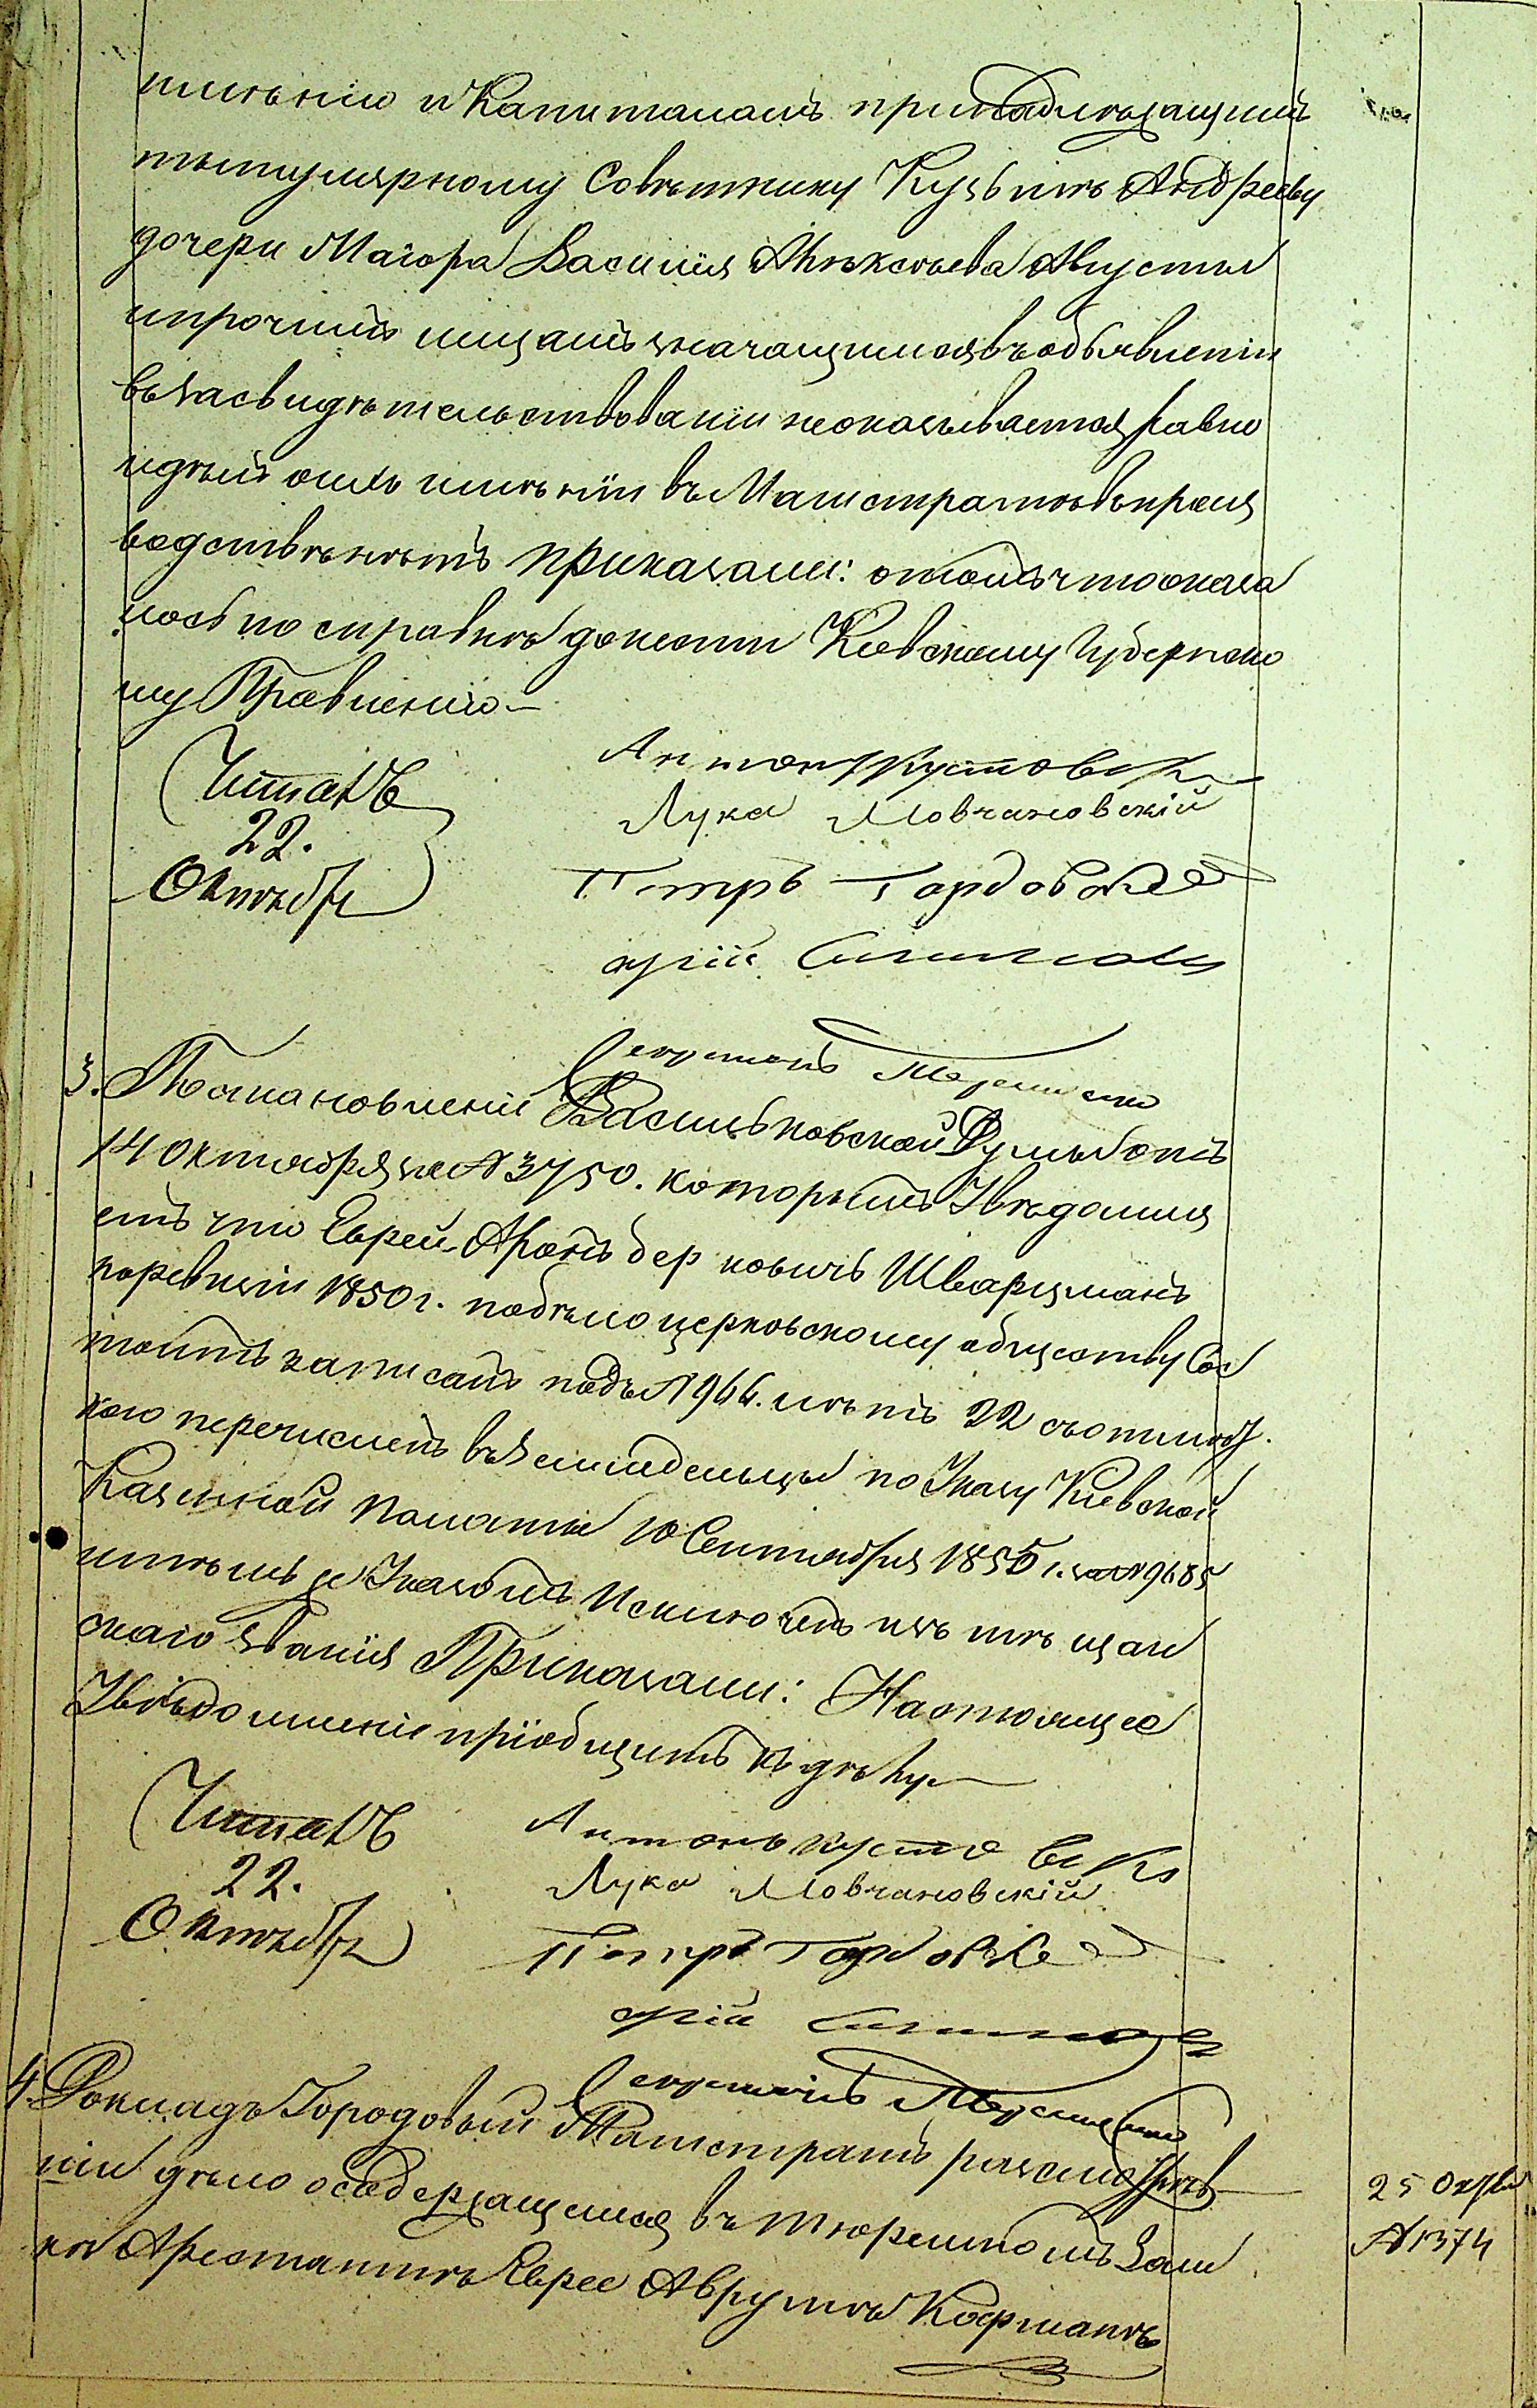 имѣнію и Капиталамъ принадлежащимъ
титулярному Совѣтнику Кузьмѣ Андрееву
дочери Маіора Василія Алексѣева Августы
и прочимъ лицамъ значащимся въ объявленіи
въ засвидѣтельствованіи неоказывается равно
и дѣлъ о имѣніи въ Магистратѣ въ произ
водствѣ нѣтъ приказали: о томъ что оказа
лось по справкѣ донести Кіевскому Губернско
му Правленію
Читалъ
22.
Октября
Антонъ Кустовскі
Лука Мовчановскій
Петръ Гордовскі
Секретарь
3. Постановленіи Васильковской Думы отъ
14 Октября за № 3750. которымъ Увѣдомля
етъ что Еврей Аронъ Берковичъ Шварцманъ
по ревизіи 1850 г. по бѣлоцерковскому обществу Сос
тоитъ записанъ подъ № 966. лѣтъ 22 съ отмѣт.
кою перечисленъ въ Земледельцы по Указу Кіевской
Казенной Палаты 10 Сентября 1855 г. за № 9685
имѣнъ Указомъ Исключенъ изъ мѣщан
скаго званія Приказали: Настоящее
Увѣдомленіе пріобщить къ дѣлу
Читалъ
22.
Октября
Антонъ Кустовскі
Лука Мовчановскій
Петръ Гордовскі
Секретарь
4. Докладъ Городовый Магистратъ разсмотрѣв
ши дѣло о содержащемся въ тюремномъ Зам
кѣ Арестантѣ Еврее Аврумѣ Кофманѣ
25 Октяб
№ 1374